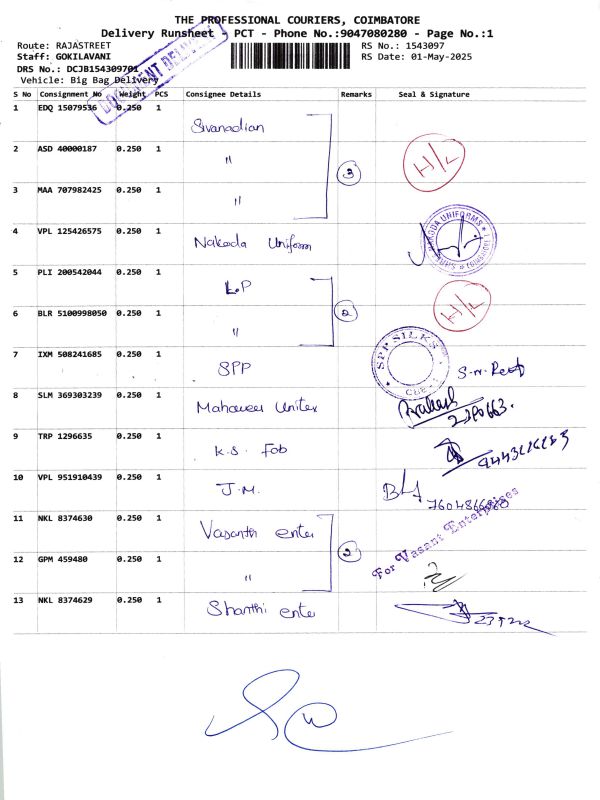 THE PROFESSIONAL COURIERS, COIMBATORE
Delivery Runsheet - PCT - Phone No.:9047080280 - Page No.:1
Route: RAJASTREET
RS No.: 1543097
Staff: GOKILAVANI
RS Date: 01-May-2025
DRS No.: DCJB154309701
Vehicle: Big Bag Delivery
S No Consignment No Weight PCS Consignee Details Remarks Seal & Signature
1 EDQ 15079536 0.250 1 Sivanadian
2 ASD 40000187 0.250 1 " 3 H/L
3 MAA 707982425 0.250 1 "
4 VPL 125426575 0.250 1 Nakoda Uniform NAKODA UNIFORMS
5 PLI 200542044 0.250 1 L.P H/L
6 BLR 5100998050 0.250 1 " 2
7 IXM 508241685 0.250 1 SPP SPP SILKS CBE
8 SLM 369303239 0.250 1 Mahaveer Unitex Prakash
9 TRP 1296635 0.250 1 K.S. Fab
10 VPL 951910439 0.250 1 J.M.
11 NKL 8374630 0.250 1 Vasanth ente For Vasant Enterprises
12 GPM 459480 0.250 1 " 2
13 NKL 8374629 0.250 1 Shanthi ente